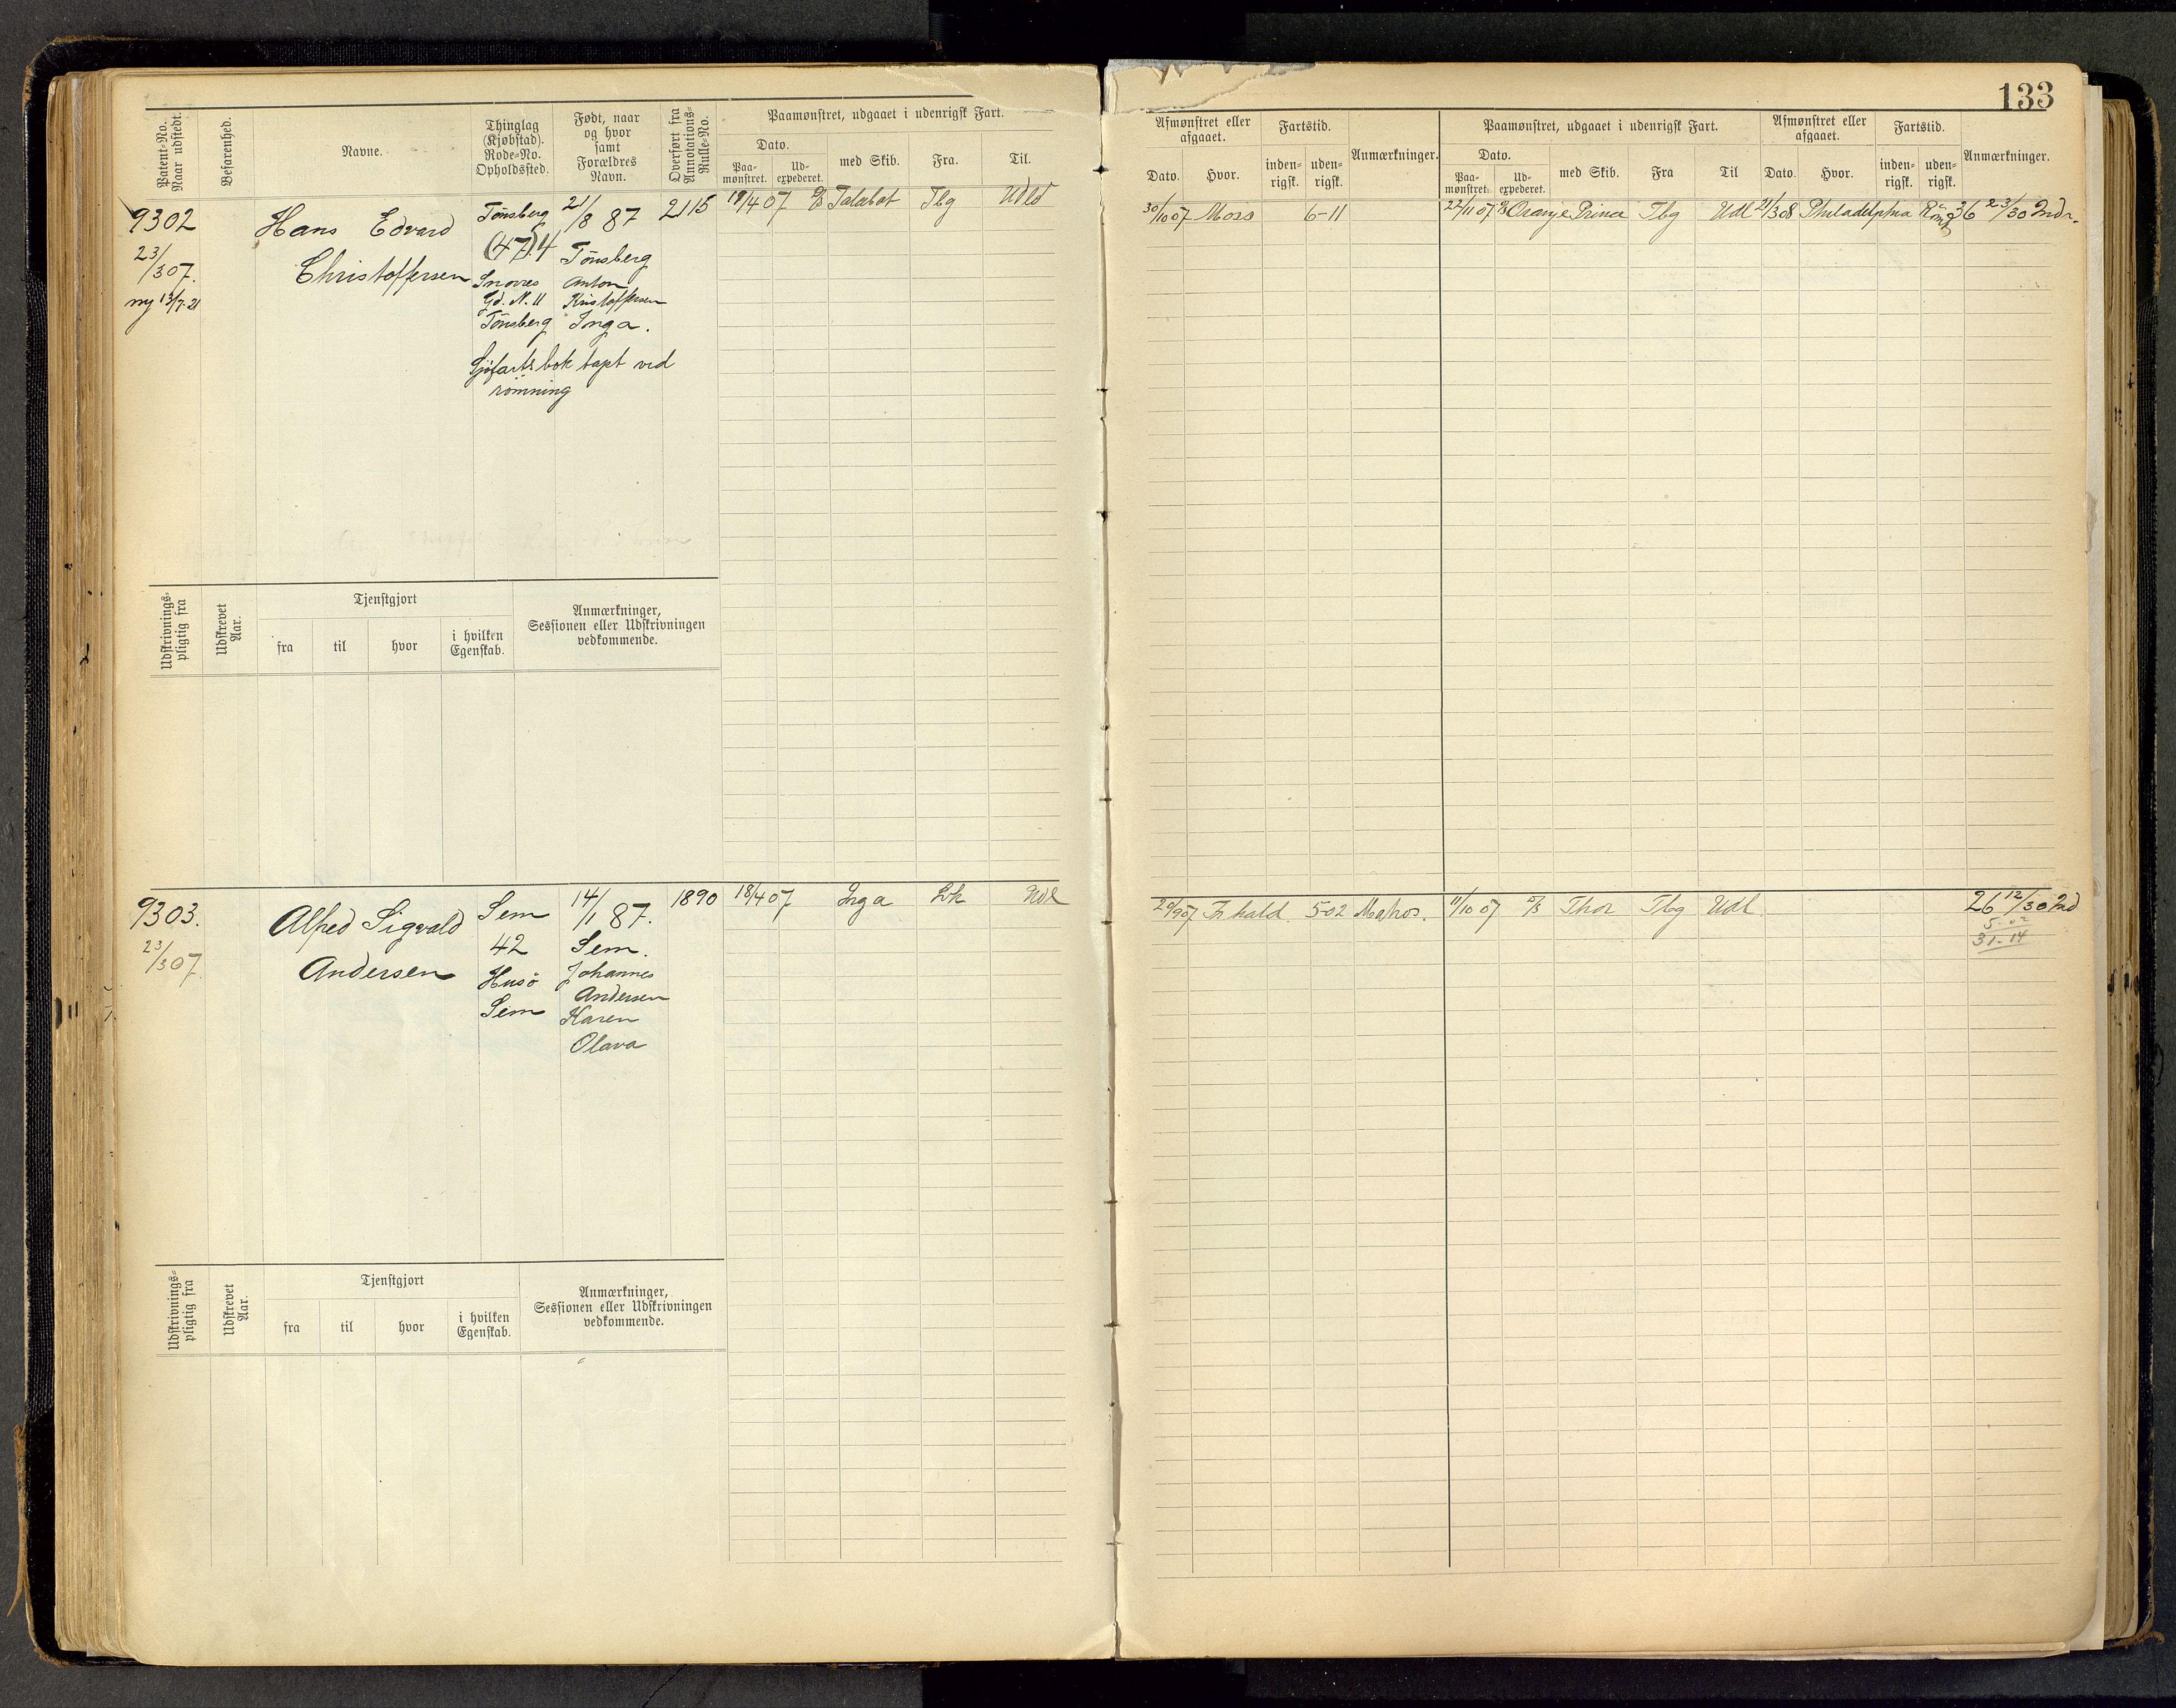 133
Patent-No. Naar udstedt.
Befarenhed.
Navne.
Thinglag (Kjøbstad). Rode-No. Opholdssted.
Født, naar og hvor samt Forældres Navn.
Overført fra Annotations-Rulle-No.
Paamønstret, udgaaet i udenrigsk Fart.
Dato.
Paa-mønstret.
Ud-expederet.
med Skib.
Fra.
Til.
Afmønstret eller afgaaet.
Dato.
Hvor.
Fartstid.
inden-rigsk.
uden-rigsk.
Anmærkninger.
Paamønstret, udgaaet i udenrigsk Fart.
Dato.
Paa-mønstret.
Ud-expederet.
med Skib.
Fra
Til
Afmønstret eller afgaaet.
Dato.
Hvor.
Fartstid.
inden-rigsk.
uden-rigsk.
Anmærkninger.
9302
23/3 07.
ny 13/7.21
Hans Edvard
Christoffersen
Tönsberg
(47) 4
Snorres
Gd. N. 11
Tönsberg
21/8 87
Tönsberg
Anton
Kristoffersen
Inga.
Sjöfartsbok tapt ved
römning
2115
19/4 07 Talabot Tbg Udld
30/10 07 Moss 6-11
22/11 07 Oranje Prince Tbg Udl 21/3 08 Philadelphia
36 23/30 Mdr.
Udskrivnings-pligtig fra
Udskrevet Aar.
Tjenstgjort
fra
til
hvor
i hvilken Egenskab.
Anmærkninger,
Sessionen eller Udskrivningen
vedkommende.
9303.
23/3 07.
Alfred Sigvald
Andersen
Sem
42
Husö
Sem
14/1 87.
Sem.
Johannes
Andersen
Karen
Olava
1890
18/4 07 Inga Lvk Udl
20/9 07 Frhald. 5-02 Matros.
11/10 07 Thor Tbg Udl
26 12/30 Md
5-02
31-14
Udskrivnings-pligtig fra
Udskrevet Aar.
Tjenstgjort
fra
til
hvor
i hvilken Egenskab.
Anmærkninger,
Sessionen eller Udskrivningen
vedkommende.